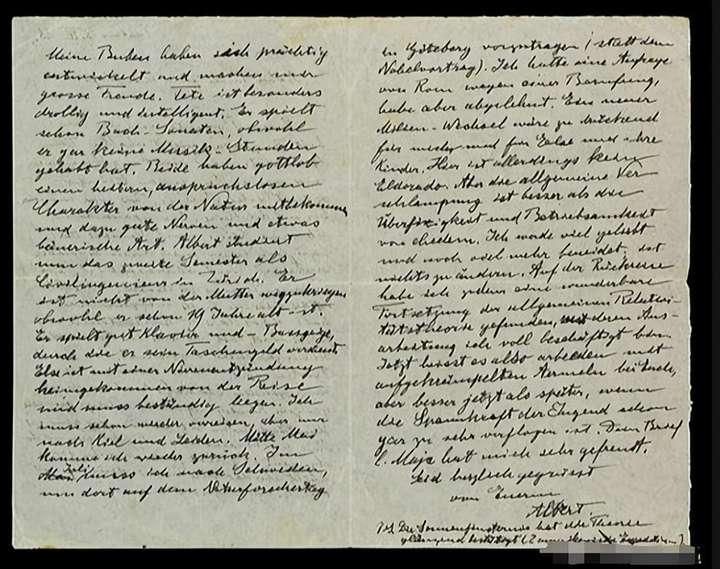 Meine Buben haben sich prächtig
entwickelt und machen mir
grosse Freude. Tete ist besonders
drollig und intelligent. Er spielt
schon Bach-Sonaten, obwohl
er gar keine Musik-Stunden
gehabt hat. Beide haben gottlob
einen heitern, anspruchslosen
Charakter von der Natur mitbekommen
und dazu gute Nerven und etwas
bäuerische Art. Albert studiert
nun das zweite Semester als
Civilingenieur in Zürich. Er
ist nicht von der Mutter wegzukriegen
obwohl er schon 19 Jahre alt ist.
Er spielt gut Klavier und - Bassgeige,
durch die er sein Taschengeld verdient
Else ist mit einer Nierenentzündung
heimgekommen von der Reise
und muss beständig liegen. Ich
muss schon wieder verreisen, aber nur
nach Kiel und Leiden. Mitte Mai
komme ich wieder zurück. Im
Juli muss ich nach Schweden,
um dort auf dem Naturforschertag
in Göteborg vorzutragen (statt dem
Nobelvortrag). Ich hatte eine Anfrage
von Rom wegen einer Berufung,
habe aber abgelehnt. Ein neuer
Milieu-Wechsel wäre zu drückend
für mich und für Else und ihre
Kinder. Hier ist allerdings kein
Eldorado. Aber die allgemeine Ver
schlampung ist besser als die
und Betriebsamkeit
von ehedem. Ich werde viel geliebt
und noch viel mehr beneidet, ist
nichts zu ändern. Auf der Rückreise
habe ich eine wunderbare
Fortsetzung der allgemeinen Relativi-
tätstheorie gefunden, mit deren Aus-
arbeitung ich voll beschäftigt bin.
Jetzt heisst es also arbeiten mit
aufgekrempelten Aermeln bei Ende,
aber besser jetzt als später, wenn
die Spannkraft der Jugend schon
gar zu sehr verflogen ist. Dein Brief
l. Maja hat mich sehr gefreut.
Seid herzlich gegrüsst
von Euerm
Albert.
P.S. Die Sonnenfinsternis hat die Theorie
glänzend bestätigt (2